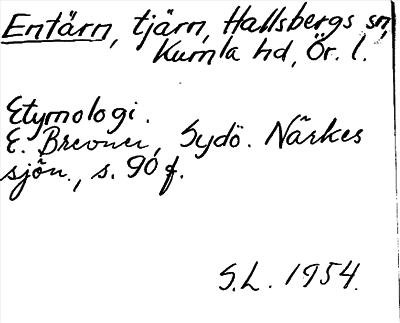 Entärn, tjärn, Hallsbergs sn,
Kumla hd, Ör. l.
Etymologi.
E. Brevner, Sydö. Närkes
sjön., s. 90 f.
S.L. 1954.